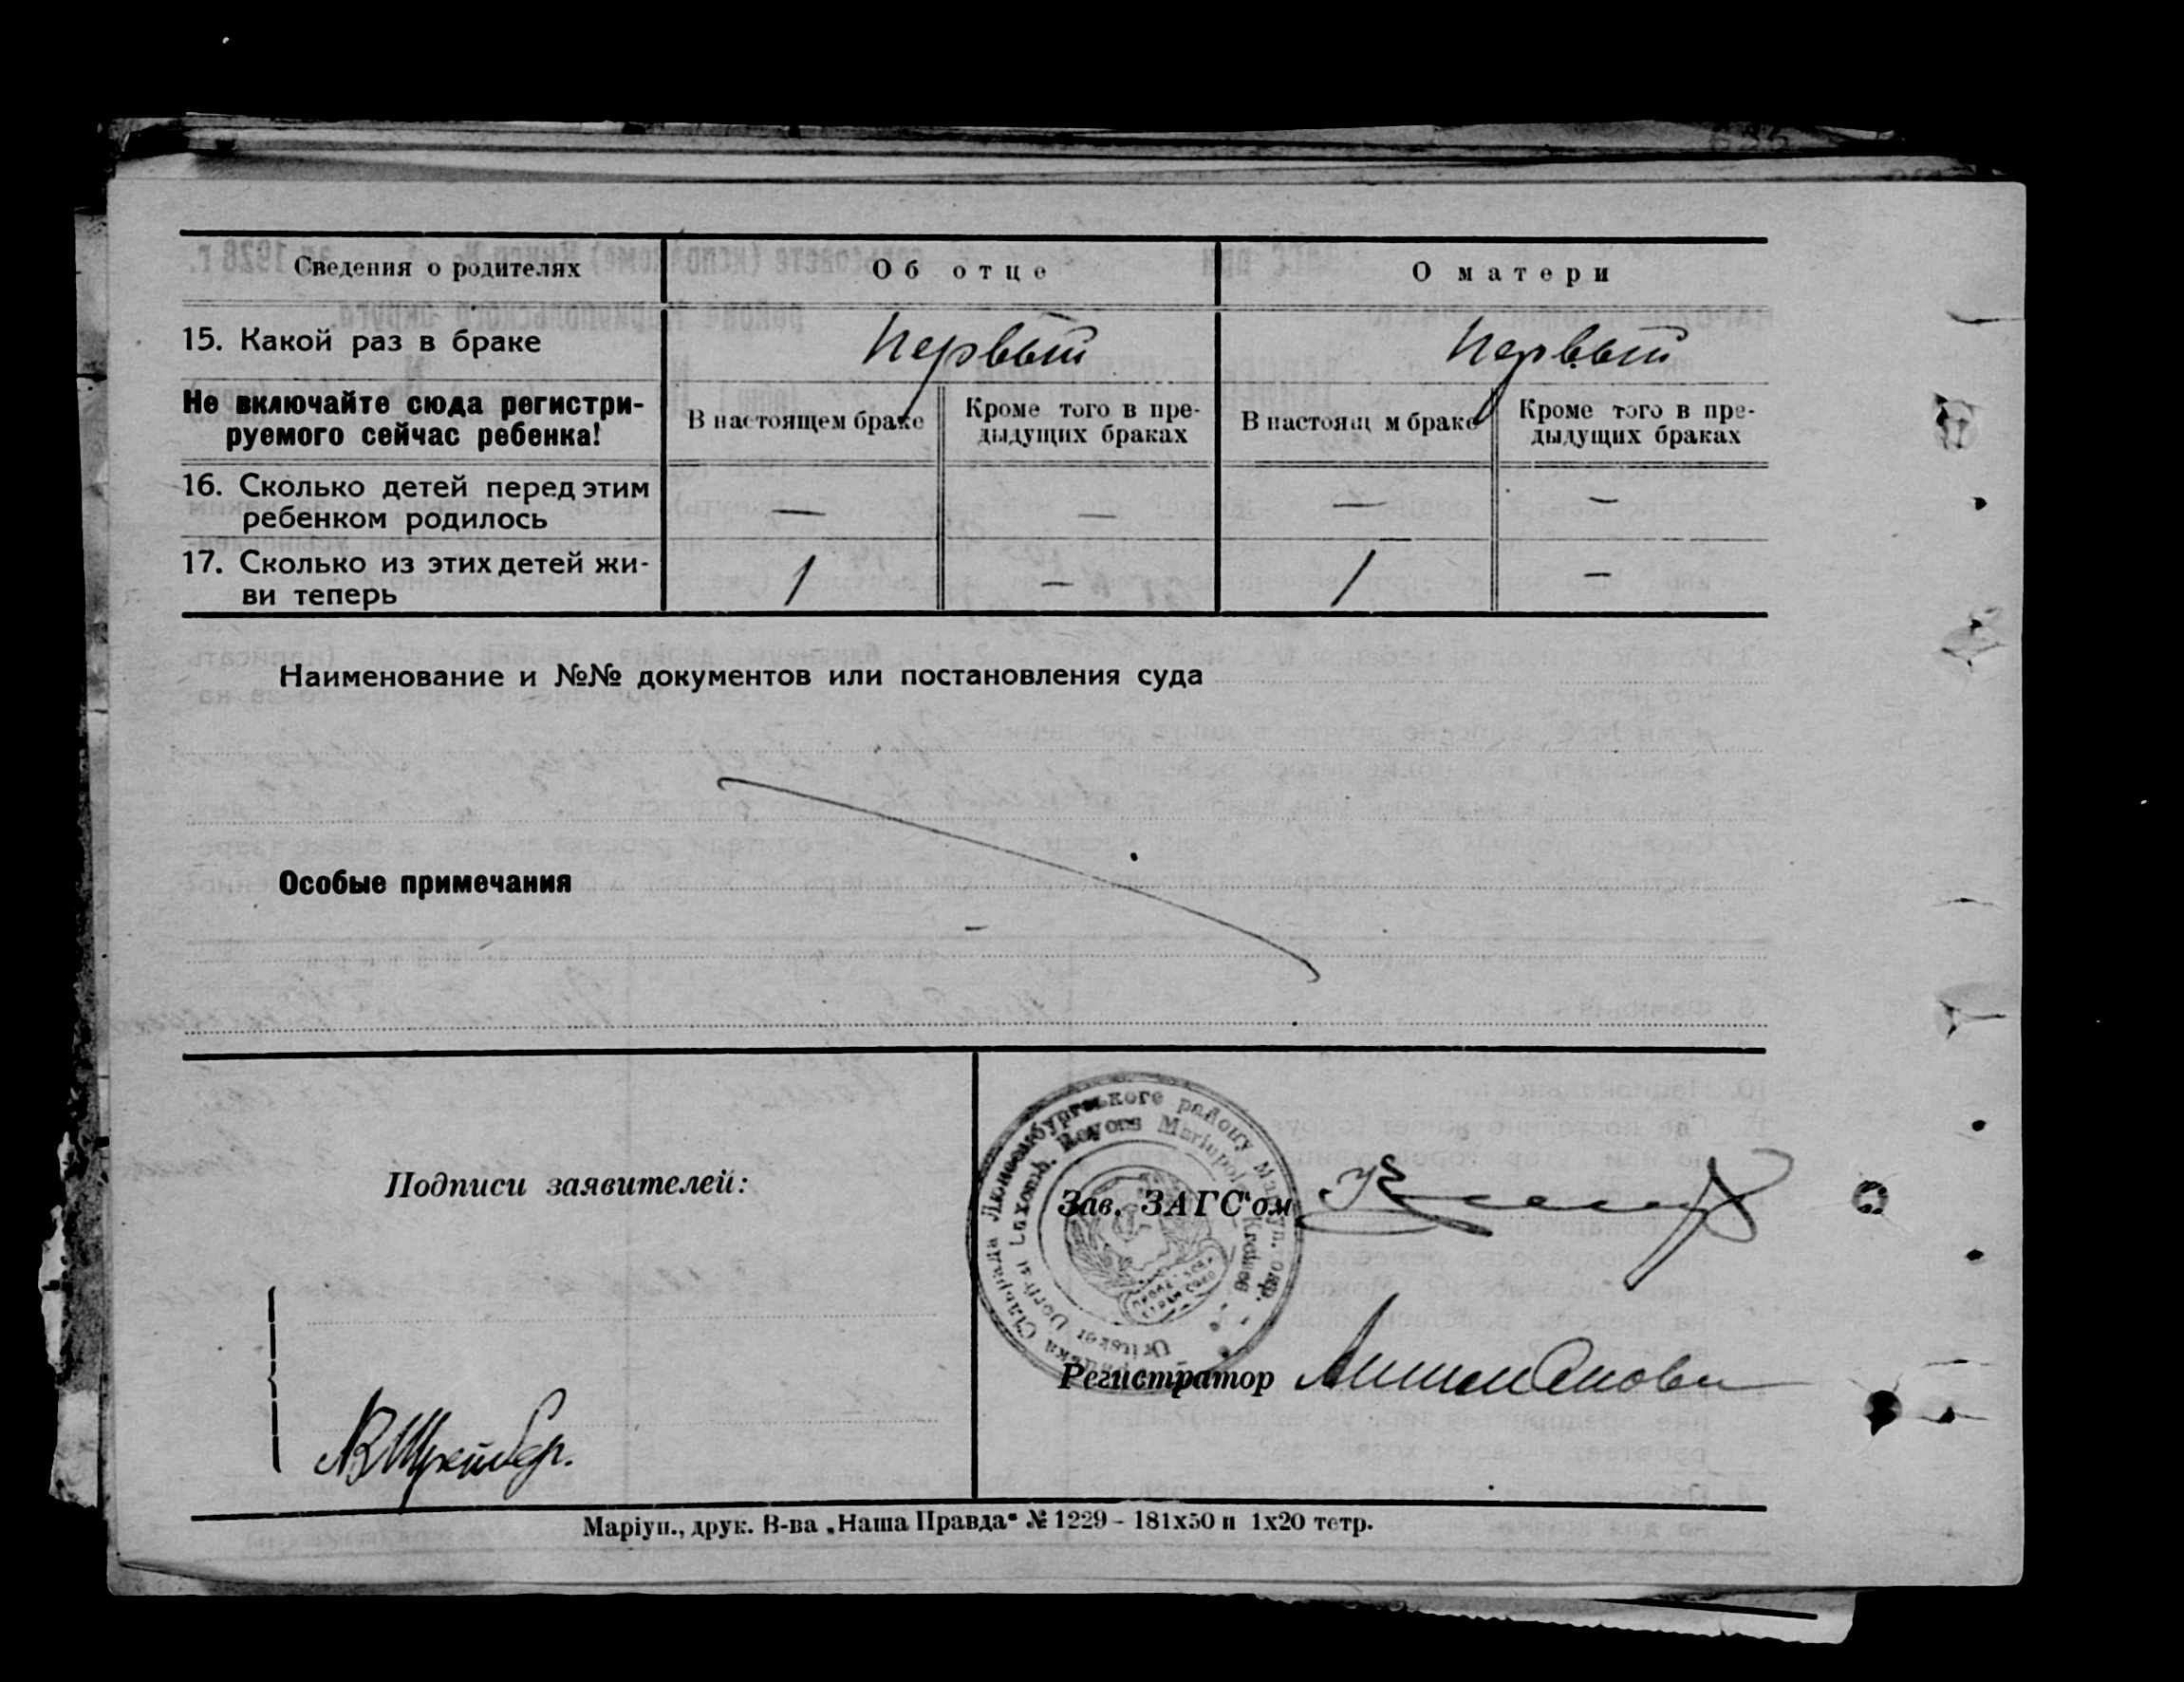 Сведения о родителях Об отце О матери
15. Какой раз в браке Первый Первый
Не включайте сюда регистри-
руемого сейчас ребенка!
В настоящем браке Кроме того в пре-
дыдущих браках
В настоящ м браке Кроме того в пре-
дыдущих браках
16. Сколько детей перед этим
ребенком родилось — — — —
17. Сколько из этих детей жи-
ви теперь 1 — 1 —
Наименование и №№ документов или постановления суда
Особые примечания
Подписи заявителей:
Люксембургського району Маріуп. окр.
Rayons Mariupoler Kreises
Зав. ЗАГС'ом
Регистратор
Маріуп., друк. В-ва „Наша Правда" № 1229 - 181х50 и 1х20 тетр.